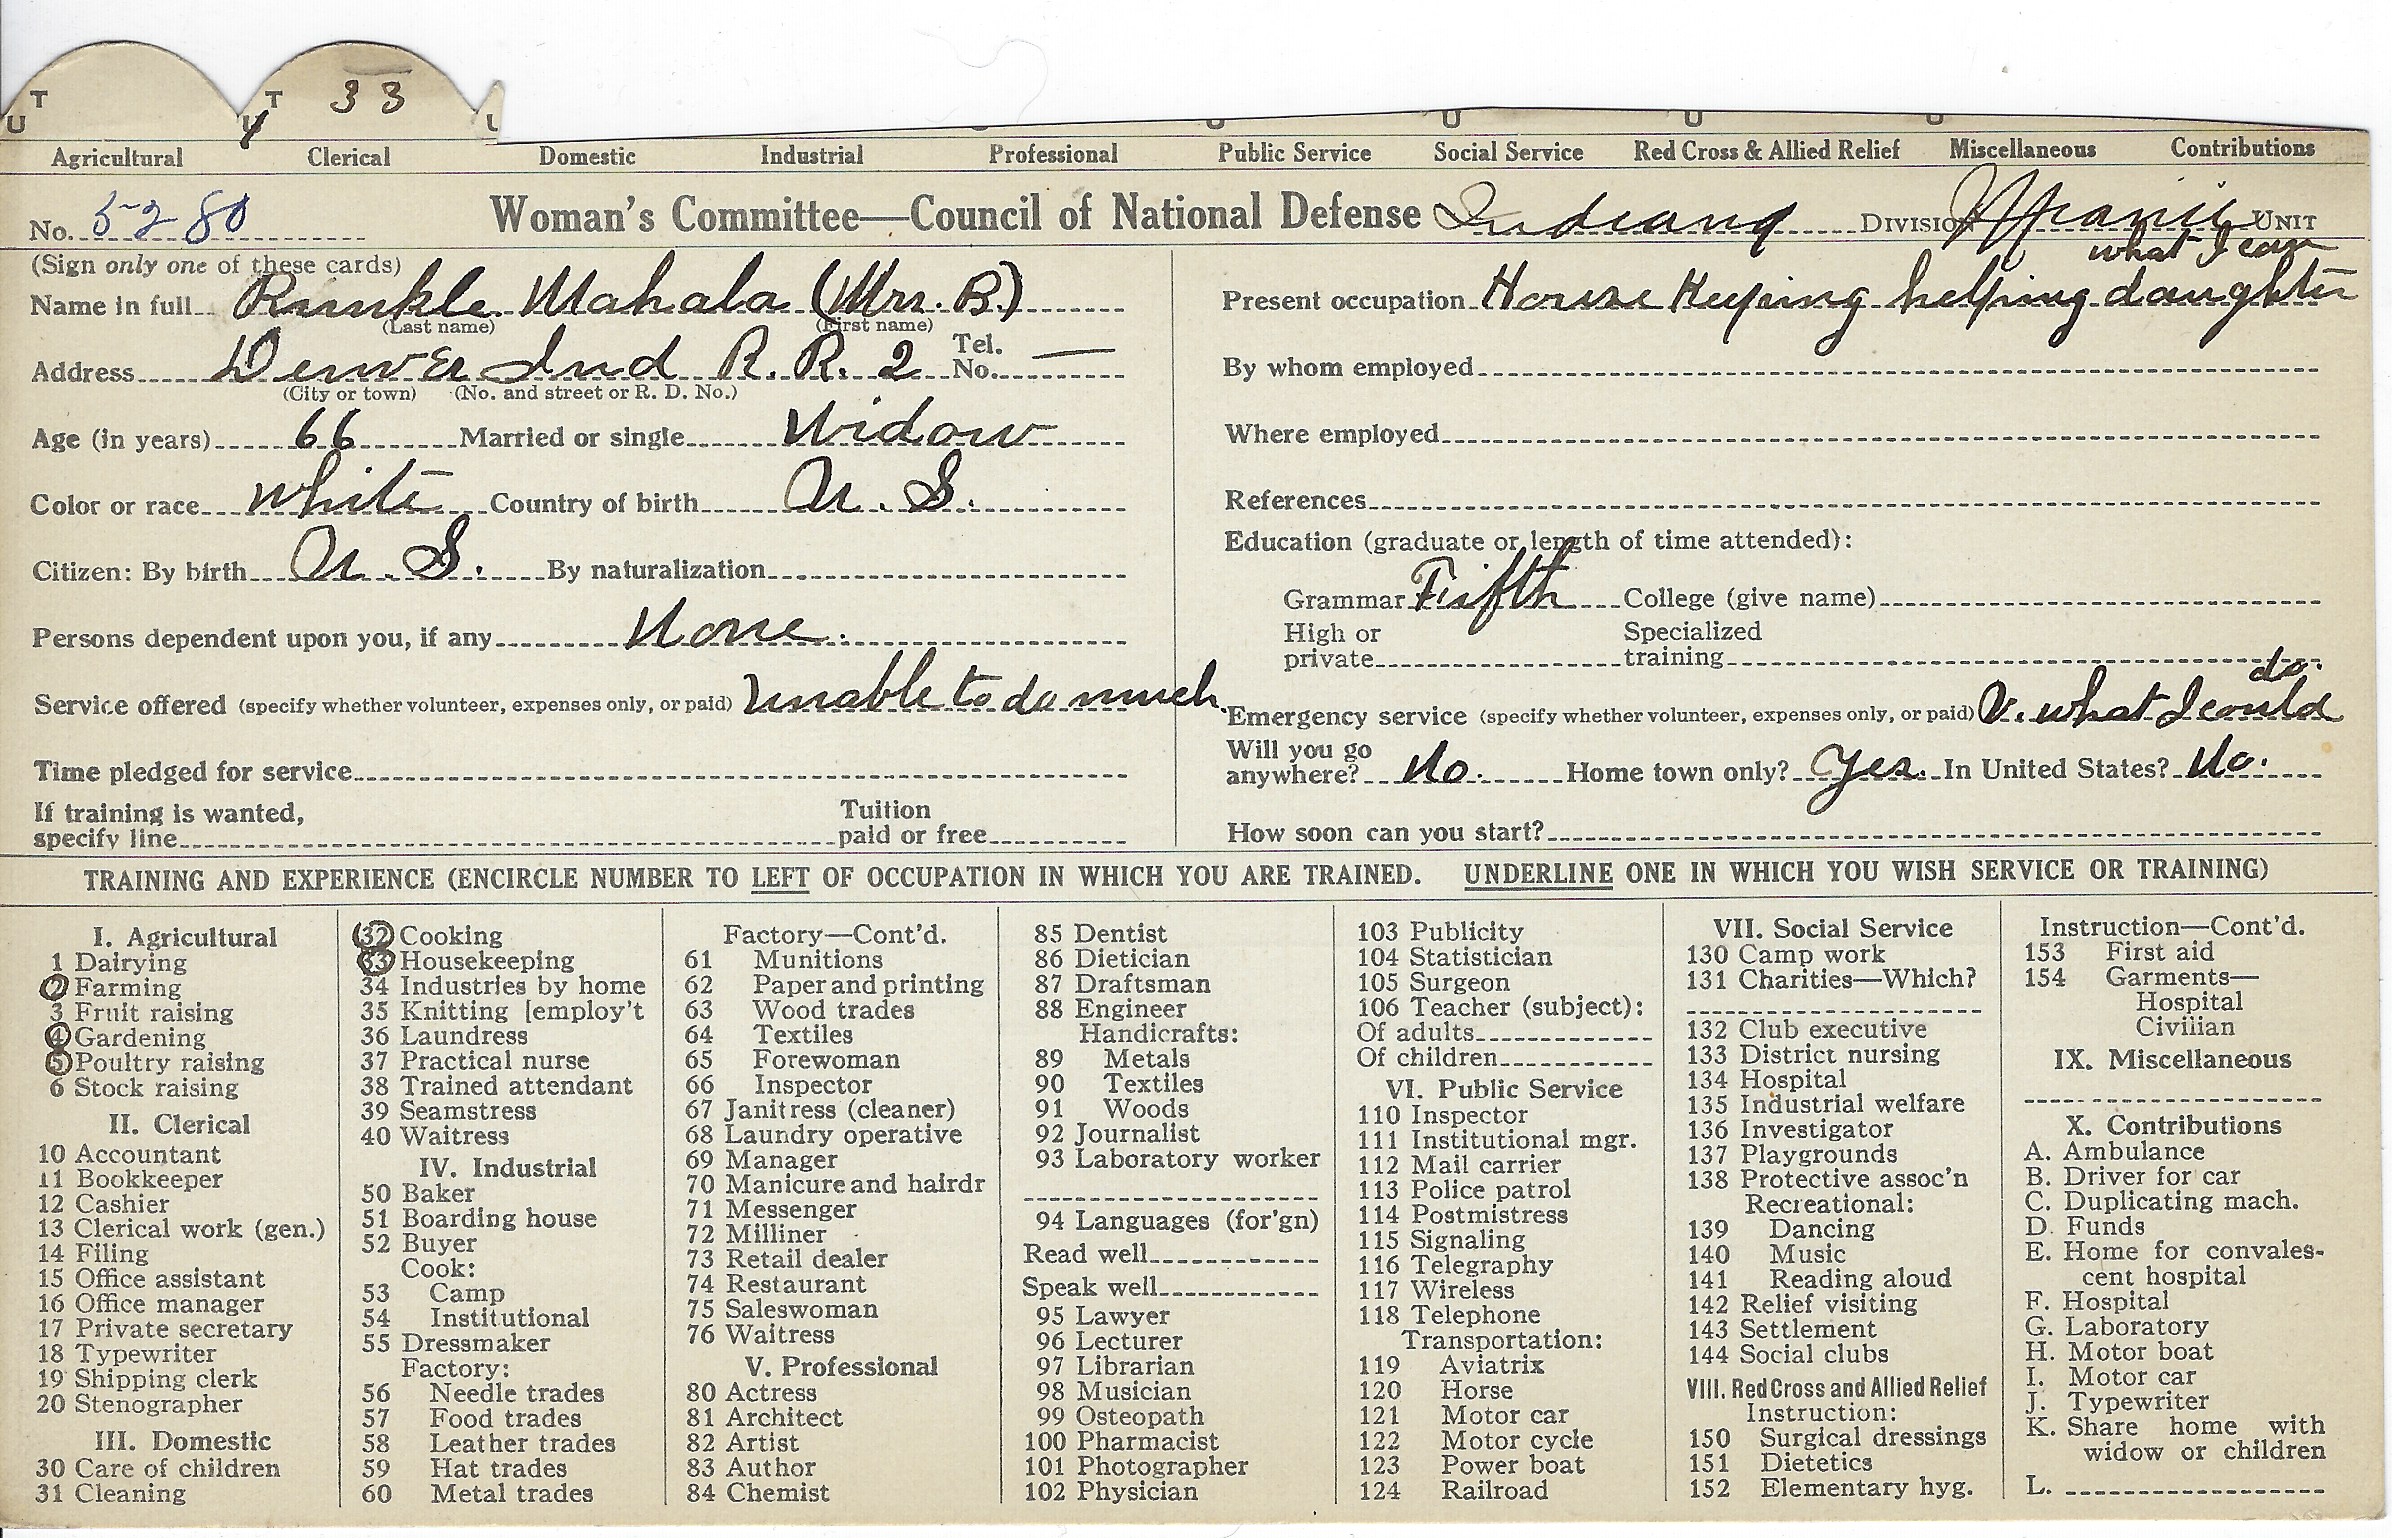 T T 33
U 4 U U U U U
Agricultural Clerical Domestic Industrial Professional Public Service Social Service Red Cross & Allied Relief Miscellaneous Contributions
No. 5280 Woman's Committee—Council of National Defense Indiana DIVISION UNIT
(Sign only one of these cards)
Name in full Runkle Mahala (Mrs. B.)
(Last name) (First name)
Address Denver Ind R. R. 2 Tel. No. —
(City or town) (No. and street or R. D. No.)
Age (in years) 66 Married or single Widow
Color or race white Country of birth U. S.
Citizen: By birth U. S. By naturalization
Persons dependent upon you, if any None.
Service offered (specify whether volunteer, expenses only, or paid) Unable to do much.
Time pledged for service
If training is wanted,
specify line Tuition paid or free
what I can
Present occupation House Keeping helping daughter
By whom employed
Where employed
References
Education (graduate or length of time attended):
Grammar Fifth College (give name)
High or private Specialized training
do.
Emergency service (specify whether volunteer, expenses only, or paid) V. what I could
Will you go
anywhere? No. Home town only? Yes. In United States? No.
How soon can you start?
TRAINING AND EXPERIENCE (ENCIRCLE NUMBER TO LEFT OF OCCUPATION IN WHICH YOU ARE TRAINED. UNDERLINE ONE IN WHICH YOU WISH SERVICE OR TRAINING)
I. Agricultural
1 Dairying
2 Farming
3 Fruit raising
4 Gardening
5 Poultry raising
6 Stock raising
II. Clerical
10 Accountant
11 Bookkeeper
12 Cashier
13 Clerical work (gen.)
14 Filing
15 Office assistant
16 Office manager
17 Private secretary
18 Typewriter
19 Shipping clerk
20 Stenographer
III. Domestic
30 Care of children
31 Cleaning
32 Cooking
33 Housekeeping
34 Industries by home
35 Knitting [employ't
36 Laundress
37 Practical nurse
38 Trained attendant
39 Seamstress
40 Waitress
IV. Industrial
50 Baker
51 Boarding house
52 Buyer
Cook:
53 Camp
54 Institutional
55 Dressmaker
Factory:
56 Needle trades
57 Food trades
58 Leather trades
59 Hat trades
60 Metal trades
Factory—Cont'd.
61 Munitions
62 Paper and printing
63 Wood trades
64 Textiles
65 Forewoman
66 Inspector
67 Janitress (cleaner)
68 Laundry operative
69 Manager
70 Manicure and hairdr
71 Messenger
72 Milliner
73 Retail dealer
74 Restaurant
75 Saleswoman
76 Waitress
V. Professional
80 Actress
81 Architect
82 Artist
83 Author
84 Chemist
85 Dentist
86 Dietician
87 Draftsman
88 Engineer
Handicrafts:
89 Metals
90 Textiles
91 Woods
92 Journalist
93 Laboratory worker
94 Languages (for'gn)
Read well
Speak well
95 Lawyer
96 Lecturer
97 Librarian
98 Musician
99 Osteopath
100 Pharmacist
101 Photographer
102 Physician
103 Publicity
104 Statistician
105 Surgeon
106 Teacher (subject):
Of adults
Of children
VI. Public Service
110 Inspector
111 Institutional mgr.
112 Mail carrier
113 Police patrol
114 Postmistress
115 Signaling
116 Telegraphy
117 Wireless
118 Telephone
Transportation:
119 Aviatrix
120 Horse
121 Motor car
122 Motor cycle
123 Power boat
124 Railroad
VII. Social Service
130 Camp work
131 Charities—Which?
132 Club executive
133 District nursing
134 Hospital
135 Industrial welfare
136 Investigator
137 Playgrounds
138 Protective assoc'n
Recreational:
139 Dancing
140 Music
141 Reading aloud
142 Relief visiting
143 Settlement
144 Social clubs
VIII. Red Cross and Allied Relief
Instruction:
150 Surgical dressings
151 Dietetics
152 Elementary hyg.
Instruction—Cont'd.
153 First aid
154 Garments—
Hospital
Civilian
IX. Miscellaneous
X. Contributions
A. Ambulance
B. Driver for car
C. Duplicating mach.
D. Funds
E. Home for convales-
cent hospital
F. Hospital
G. Laboratory
H. Motor boat
I. Motor car
J. Typewriter
K. Share home with
widow or children
L.